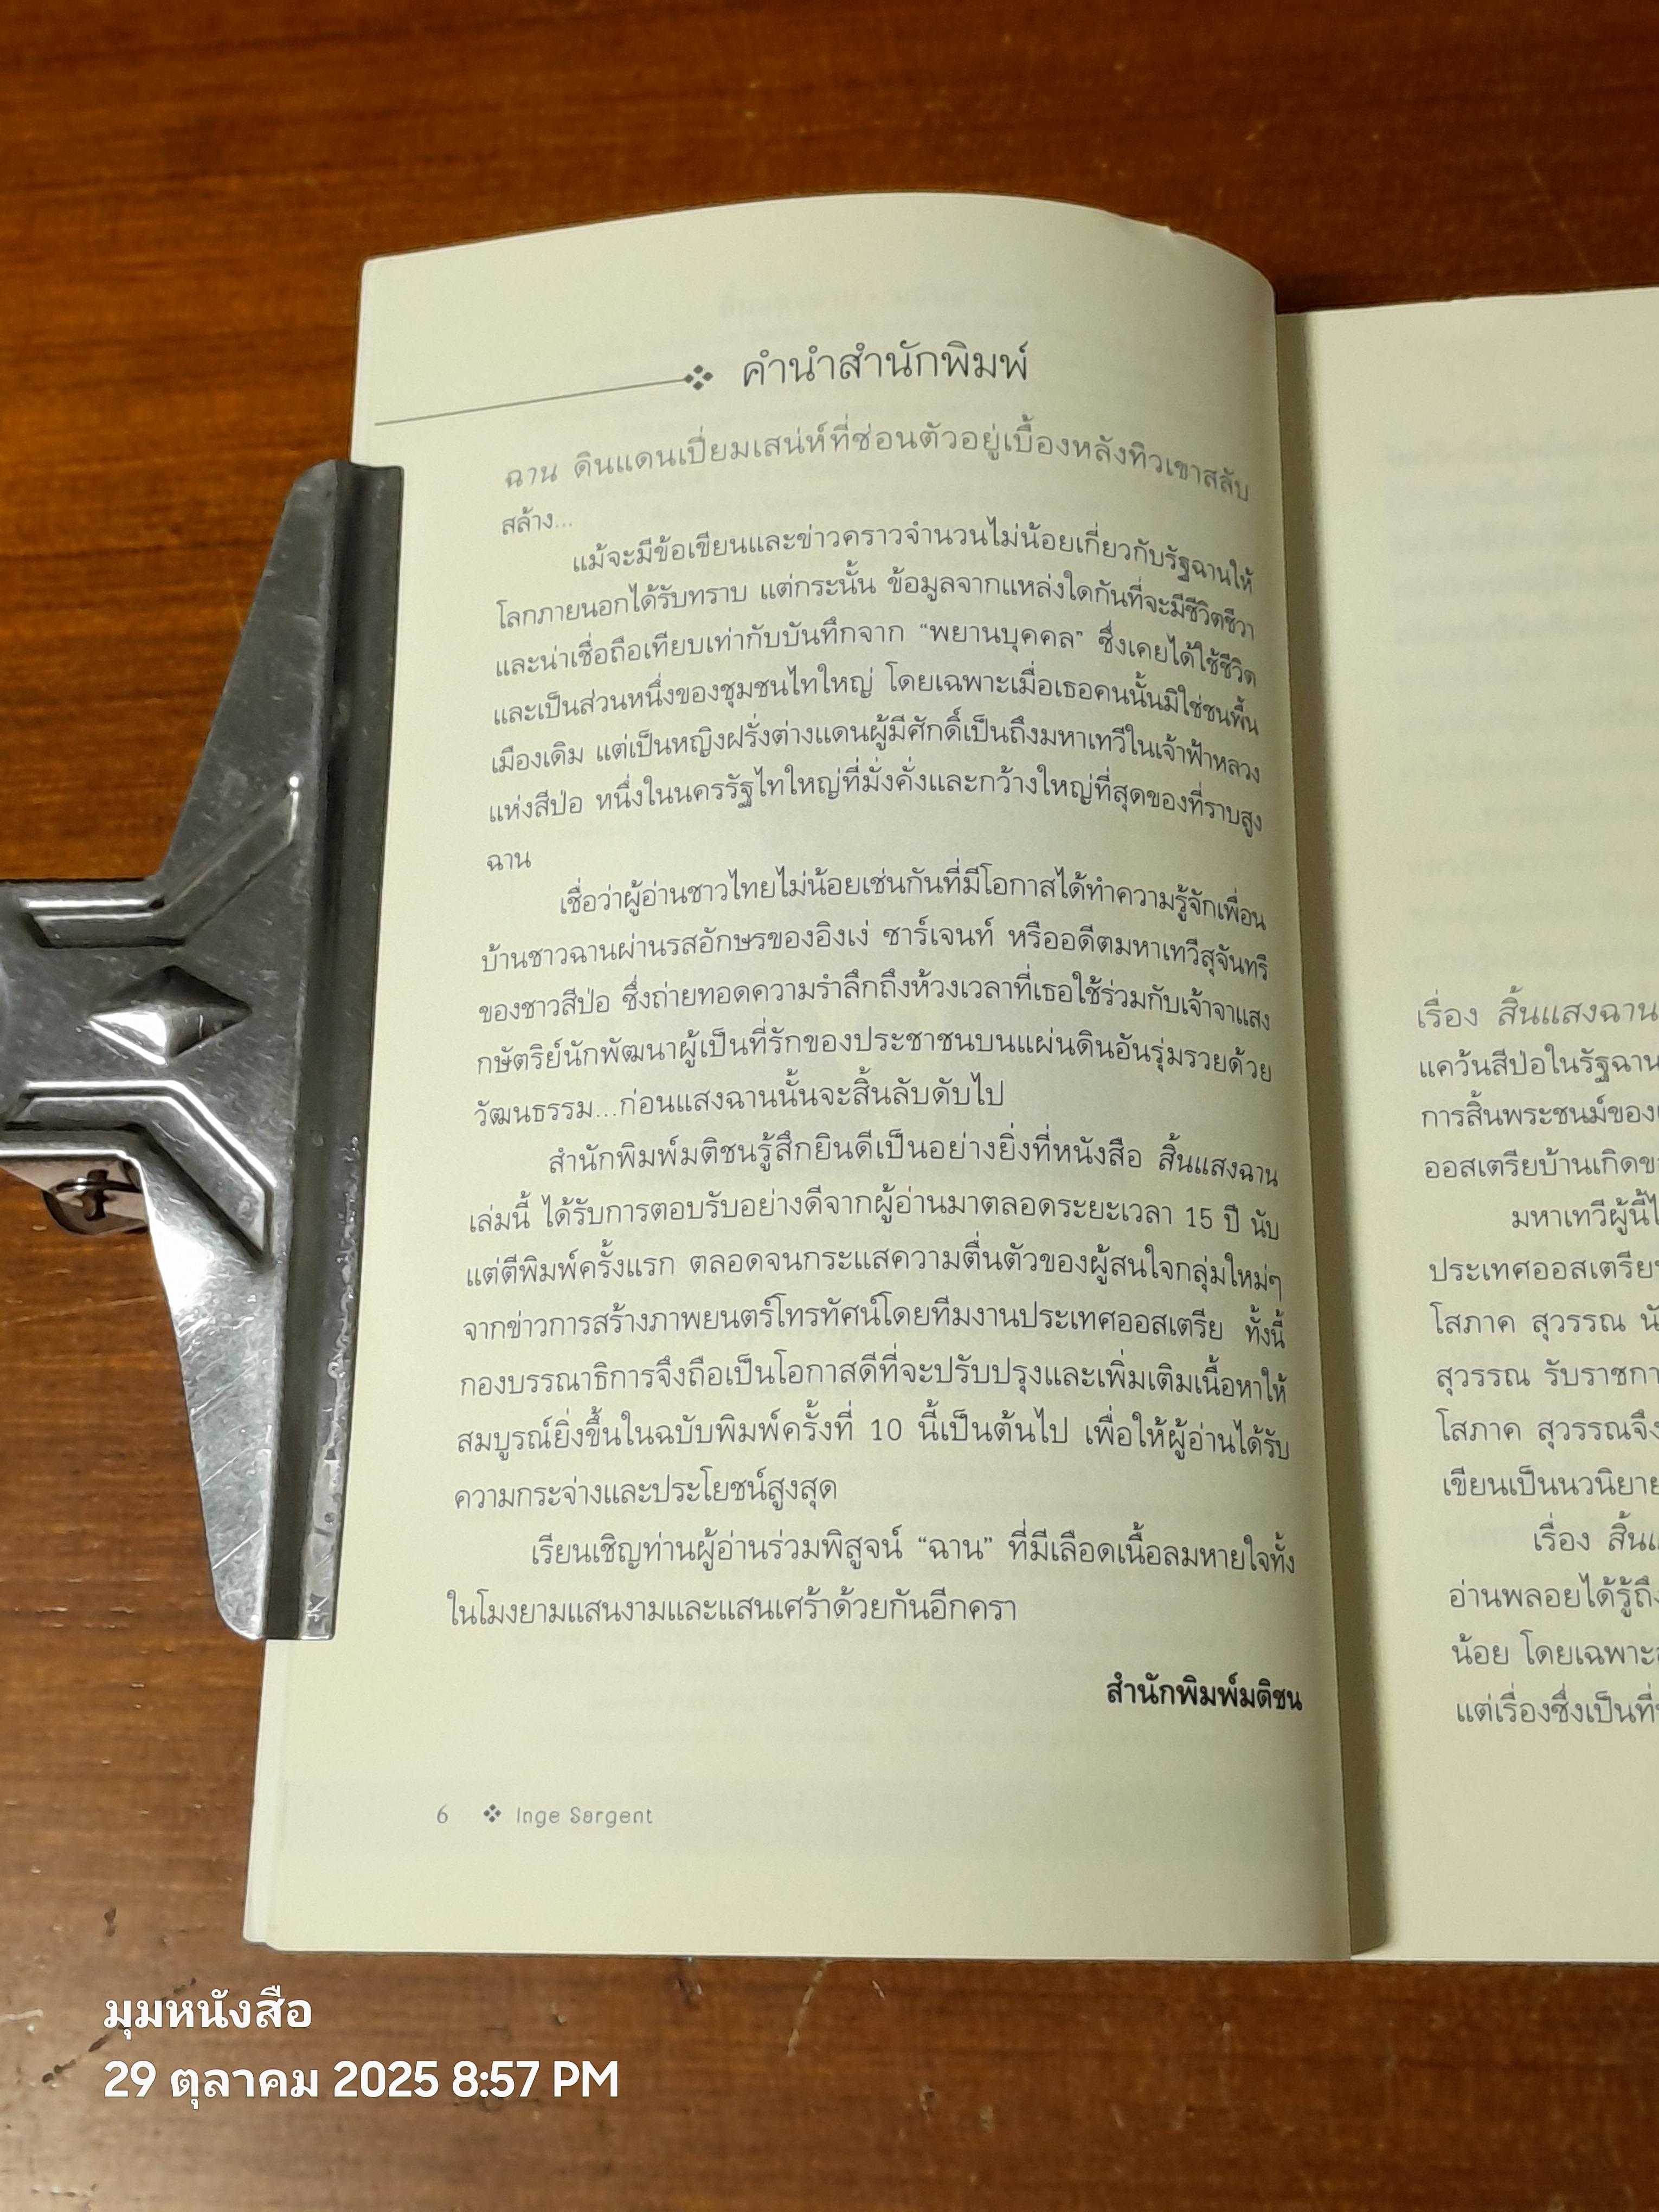 คำนำสำนักพิมพ์
ฉาน ดินแดนเปี่ยมเสน่ห์ที่ซ่อนตัวอยู่เบื้องหลังทิวเขาสลับ
สล้าง...
แม้จะมีข้อเขียนและข่าวคราวจำนวนไม่น้อยเกี่ยวกับรัฐฉานให้
โลกภายนอกได้รับทราบ แต่กระนั้น ข้อมูลจากแหล่งใดกันที่จะมีชีวิตชีวา
และน่าเชื่อถือเทียบเท่ากับบันทึกจาก “พยานบุคคล” ซึ่งเคยได้ใช้ชีวิต
และเป็นส่วนหนึ่งของชุมชนไทใหญ่ โดยเฉพาะเมื่อเธอคนนั้นมิใช่ชนพื้น
เมืองเดิม แต่เป็นหญิงฝรั่งต่างแดนผู้มีศักดิ์เป็นถึงมหาเทวีในเจ้าฟ้าหลวง
แห่งสีป่อ หนึ่งในนครรัฐไทใหญ่ที่มั่งคั่งและกว้างใหญ่ที่สุดของที่ราบสูง
ฉาน
เชื่อว่าผู้อ่านชาวไทยไม่น้อยเช่นกันที่มีโอกาสได้ทำความรู้จักเพื่อน
บ้านชาวฉานผ่านรสอักษรของอิงเง่ ซาร์เจนท์ หรืออดีตมหาเทวีสุจันทรี
ของชาวสีป่อ ซึ่งถ่ายทอดความรำลึกถึงห้วงเวลาที่เธอใช้ร่วมกับเจ้าจาแสง
กษัตริย์นักพัฒนาผู้เป็นที่รักของประชาชนบนแผ่นดินอันรุ่มรวยด้วย
วัฒนธรรม...ก่อนแสงฉานนั้นจะสิ้นลับดับไป
สำนักพิมพ์มติชนรู้สึกยินดีเป็นอย่างยิ่งที่หนังสือ สิ้นแสงฉาน
เล่มนี้ ได้รับการตอบรับอย่างดีจากผู้อ่านมาตลอดระยะเวลา 15 ปี นับ
แต่ตีพิมพ์ครั้งแรก ตลอดจนกระแสความตื่นตัวของผู้สนใจกลุ่มใหม่ๆ
จากข่าวการสร้างภาพยนตร์โทรทัศน์โดยทีมงานประเทศออสเตรีย ทั้งนี้
กองบรรณาธิการจึงถือเป็นโอกาสดีที่จะปรับปรุงและเพิ่มเติมเนื้อหาให้
สมบูรณ์ยิ่งขึ้นในฉบับพิมพ์ครั้งที่ 10 นี้เป็นต้นไป เพื่อให้ผู้อ่านได้รับ
ความกระจ่างและประโยชน์สูงสุด
เรียนเชิญท่านผู้อ่านร่วมพิสูจน์ “ฉาน” ที่มีเลือดเนื้อลมหายใจทั้ง
ในโมงยามแสนงามและแสนเศร้าด้วยกันอีกครา
สำนักพิมพ์มติชน
6 Inge Sargent
เรื่อง สิ้นแสงฉาน
แคว้นสีป่อในรัฐฉาน
การสิ้นพระชนม์ของ
ออสเตรียบ้านเกิด
มหาเทวีผู้นี้
ประเทศออสเตรีย
โสภาค สุวรรณ
สุวรรณ รับราชกา
โสภาค สุวรรณจึง
เขียนเป็นนวนิยาย
เรื่อง สิ้น
อ่านพลอยได้รู้ถึง
น้อย โดยเฉพาะ
แต่เรื่องซึ่งเป็นที่
มุมหนังสือ
29 ตุลาคม 2025 8:57 PM